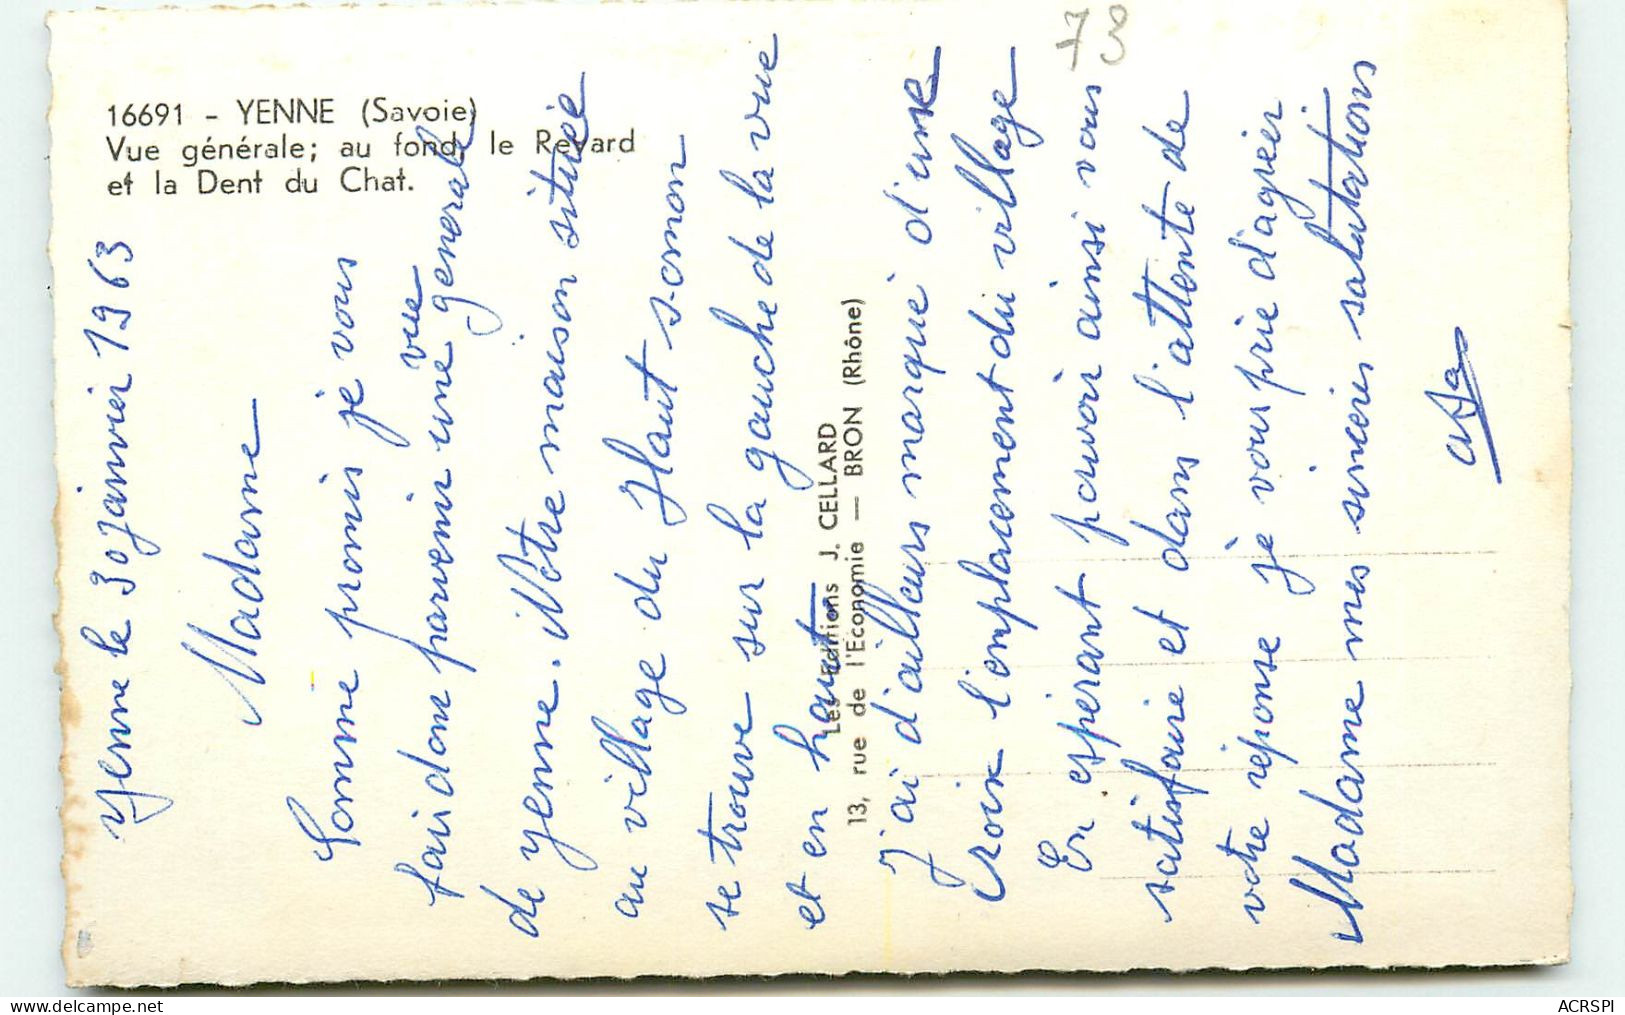 73
16691 - YENNE (Savoie)
Vue générale; au fond, le Revard
et la Dent du Chat.
Les Editions J. CELLARD
13, rue de l'Economie — BRON (Rhône)
Yenne le 30 janvier 1963
Madame
Comme promis je vous
fais donc parvenir une vue generale
de Yenne. Notre maison située
au village du Haut Somon
se trouve sur la gauche de la vue
et en haut
J'ai d'ailleurs marqué d'une
croix l'emplacement du village
En esperant pouvoir ainsi vous
satisfaire et dans l'attente de
votre réponse je vous prie d'agréer
Madame mes sincères salutations
ACRSPI